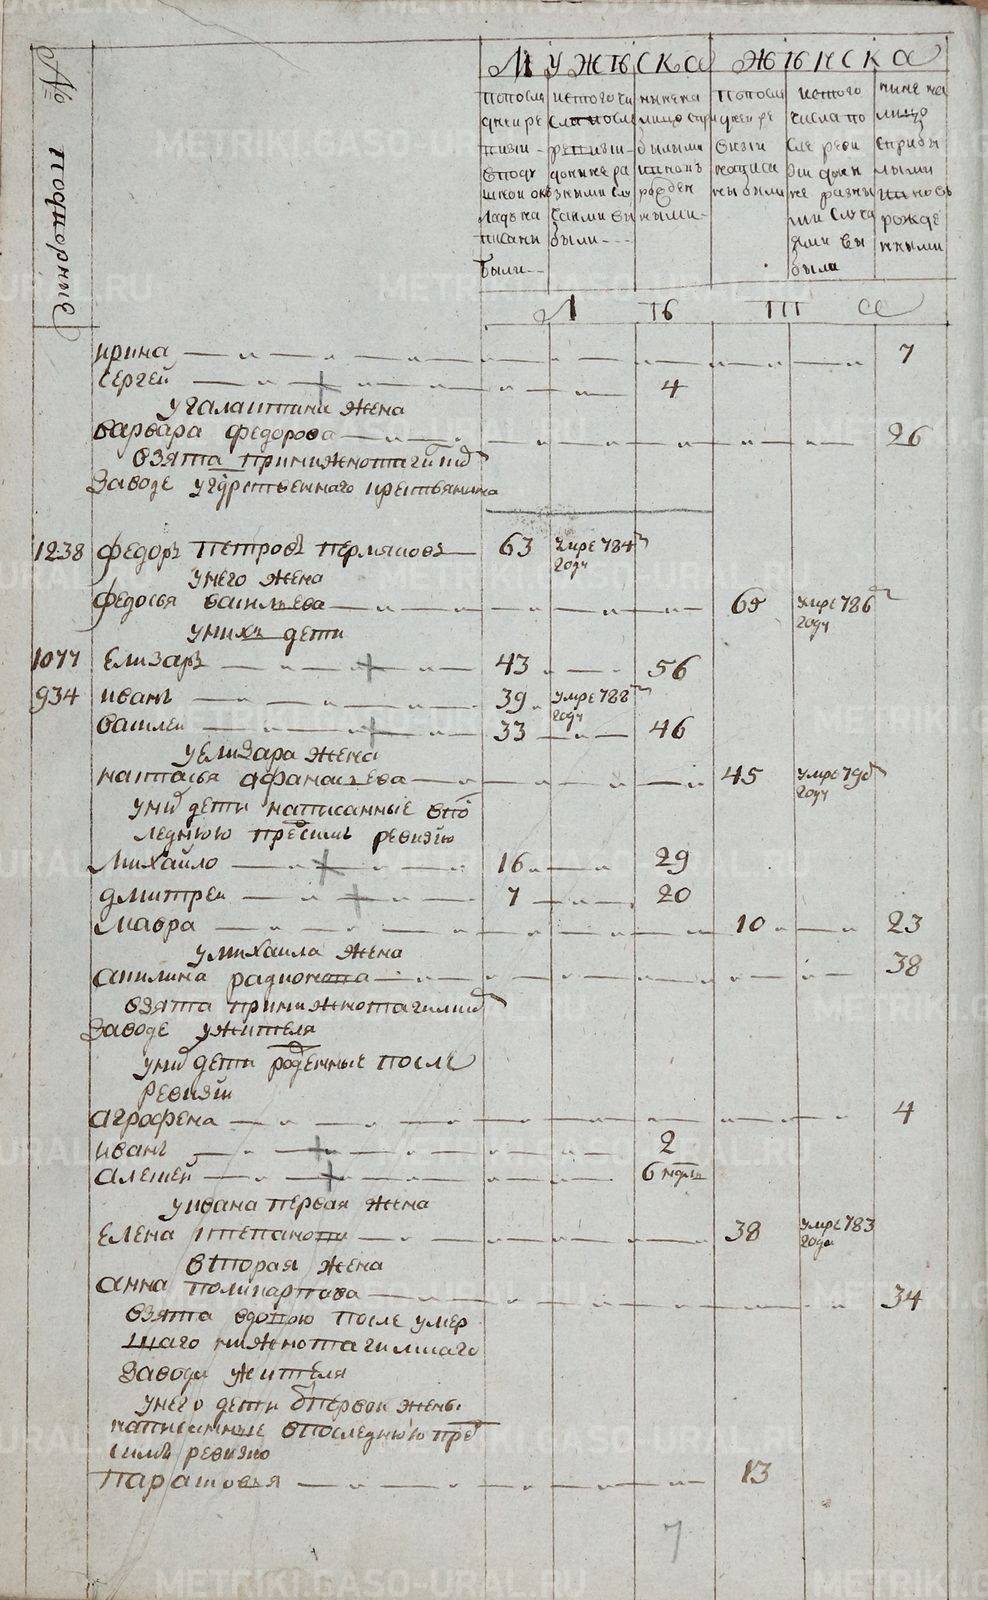 № подворные
Мужеска Женска
попосле
дней ре
визии
вподу
шной ок
ладъ на
писаны
были
истого чи
сла после
ревизии
доныне ра
зными слу
чаями вы
были
ныне на
лицо съ при
былыми
иновь
рожден
ными
попосле
дней ре
визии
написа
ны были
истого
числа по
сле реви
зии доны
не разны
ми случа
ями вы
были
ныне на
лицо
сприбы
лыми
иновь
рожде
нными
Лета
ирина 7
Сергей 4
угалантина жена
варвара федорова 26
взята принижнотагилск
Заводе угдрственнаго крестьянина
1238 федоръ Петровъ пермяковъ 63 умре 784 году
унего жена
федосья васильева 65 умре 786 году
унихъ дети
1077 Елизаръ 43 56
934 иванъ 39 умре 788 году
василей 33 46
уелизара жена
наталья афанасьева 45 умре 790 году
уних дети написанные впо
леднюю пред симъ ревизию
Михайло 16 29
дмитрей 7 20
мавра 10 23
умихаила жена
акилина радионова 38
взята принижнотагилск
Заводе ужителя
уних дети рожденные после
Ревизии
аграфена 4
иванъ 2
алексей 6 недель
уивана первая жена
Елена степанова 38 умре 783 года
вторая жена
анна поликарпова 34
взята вдовою после умер
шаго нижнотагилскаго
завода жителя
унего дети отпервой жены
написанные впоследнюю пред
симъ ревизию
Парасковья 13
7
METRIKI.GASO-URAL.RU